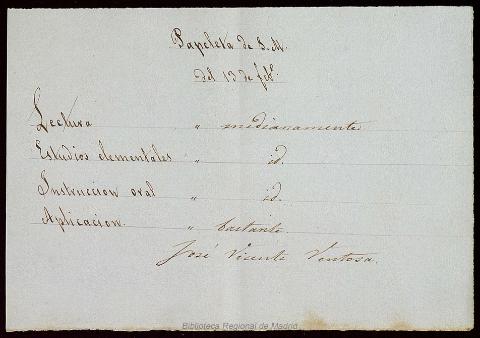 Papeleta de S. M.
del 13 de febº.
Lectura " medianamente
Estudios elementales " id.
Instruccion oral " id.
Aplicacion. " bastante
José Vicente Ventosa.
Biblioteca Regional de Madrid